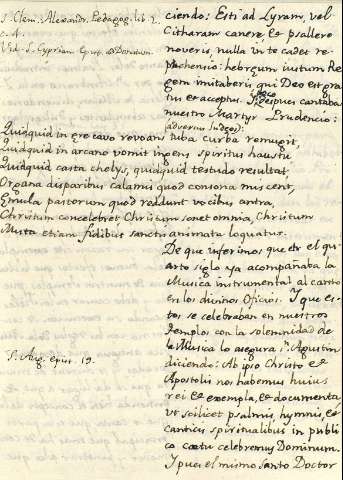 S. Clem. Alexandr. Pedagog. lib. 2.
c. 4.
Vid. S. Cyprian. Epist. ad Donatum.
ciendo: Etsi ad Lyram, vel
Citharam canere, et psallere
noveris, nulla in te cadet re-
prehensio: hebręum iustum Re-
gem imitaberis qui Deo est gra-
tus et acceptus. Y poco despues cantaba
nuestro Martyr Prudencio:
(adversus Iudęos):
Quidquid in ęre cavo revoans tuba curba remugit,
Quidquid in arcano vomit ingens spiritus haustu
Quidquid casta chelys, quidquid testudo resultat,
Organa disparibus calamis quod consona miscent,
Ęmula pastorum quod raddunt vocibus antra,
Christum concelebret Christum sonet omnia, Christum
Muta etiam fidibus sanctis animata loquatur.
De que inferimos que en el qu-
arto siglo ya acompañaba la
Musica instrumental al canto
en los divinos Oficios. Y que es-
tos se celebraban en nuestros
templos con la solemnidad de
la Musica lo asegura Sn. Agustin
S. Aug. epist. 19.
diciendo: Ab ipso Christo et
Apostolis nos habemus huius
rei et exempla, et documenta
ut scilicet psalmis, hymnis, et
canticis spiritualibus in publi-
co cœtu celebremus Dominum.
Y pues el mismo Santo Doctor